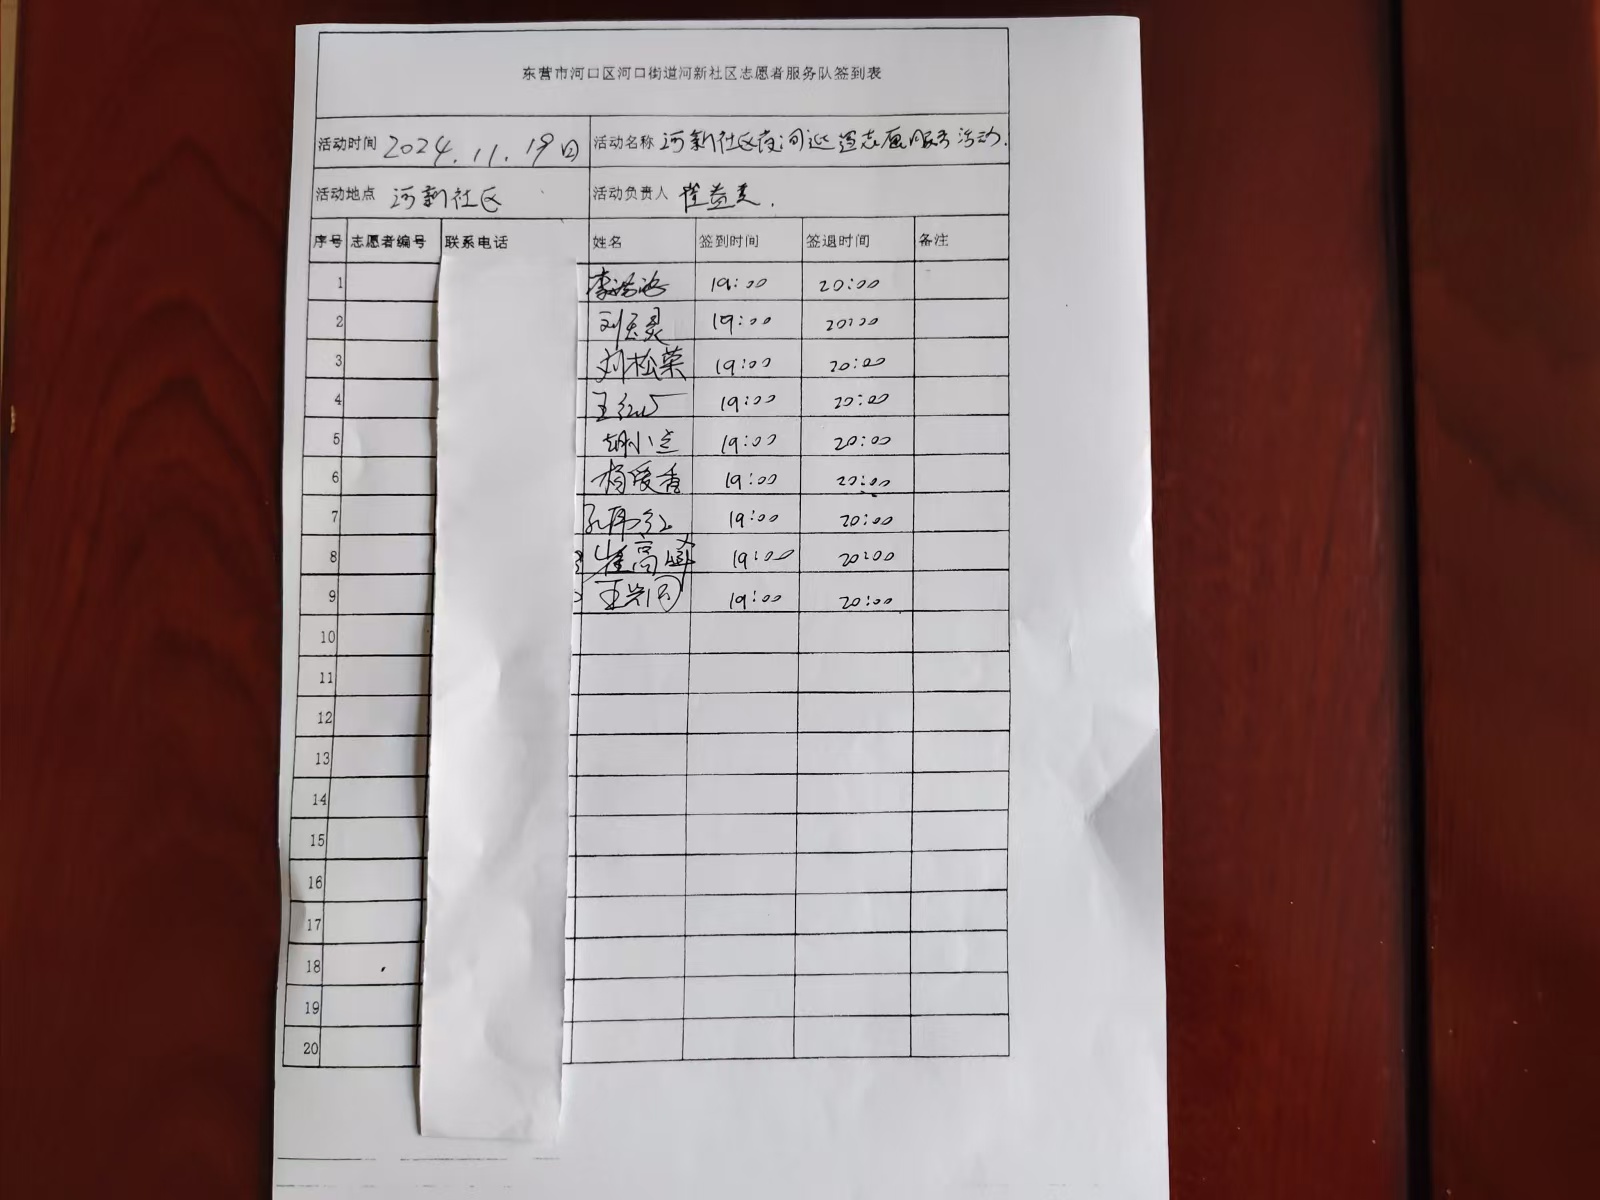 东营市河口区河口街道河新社区志愿者服务队签到表
活动时间 2024.11.19日 活动名称 河新社区夜间巡逻志愿服务活动.
活动地点 河新社区 活动负责人 崔益
序号 志愿者编号 联系电话 姓名 签到时间 签退时间 备注
1 李 19:00 20:00
2 刘 灵 19:00 20:00
3 刘松荣 19:00 20:00
4 王红 19:00 20:00
5 胡小 19:00 20:00
6 杨爱香 19:00 20:00
7 孔 红 19:00 20:00
8 崔高 19:00 20:00
9 王 19:00 20:00
10
11
12
13
14
15
16
17
18
19
20